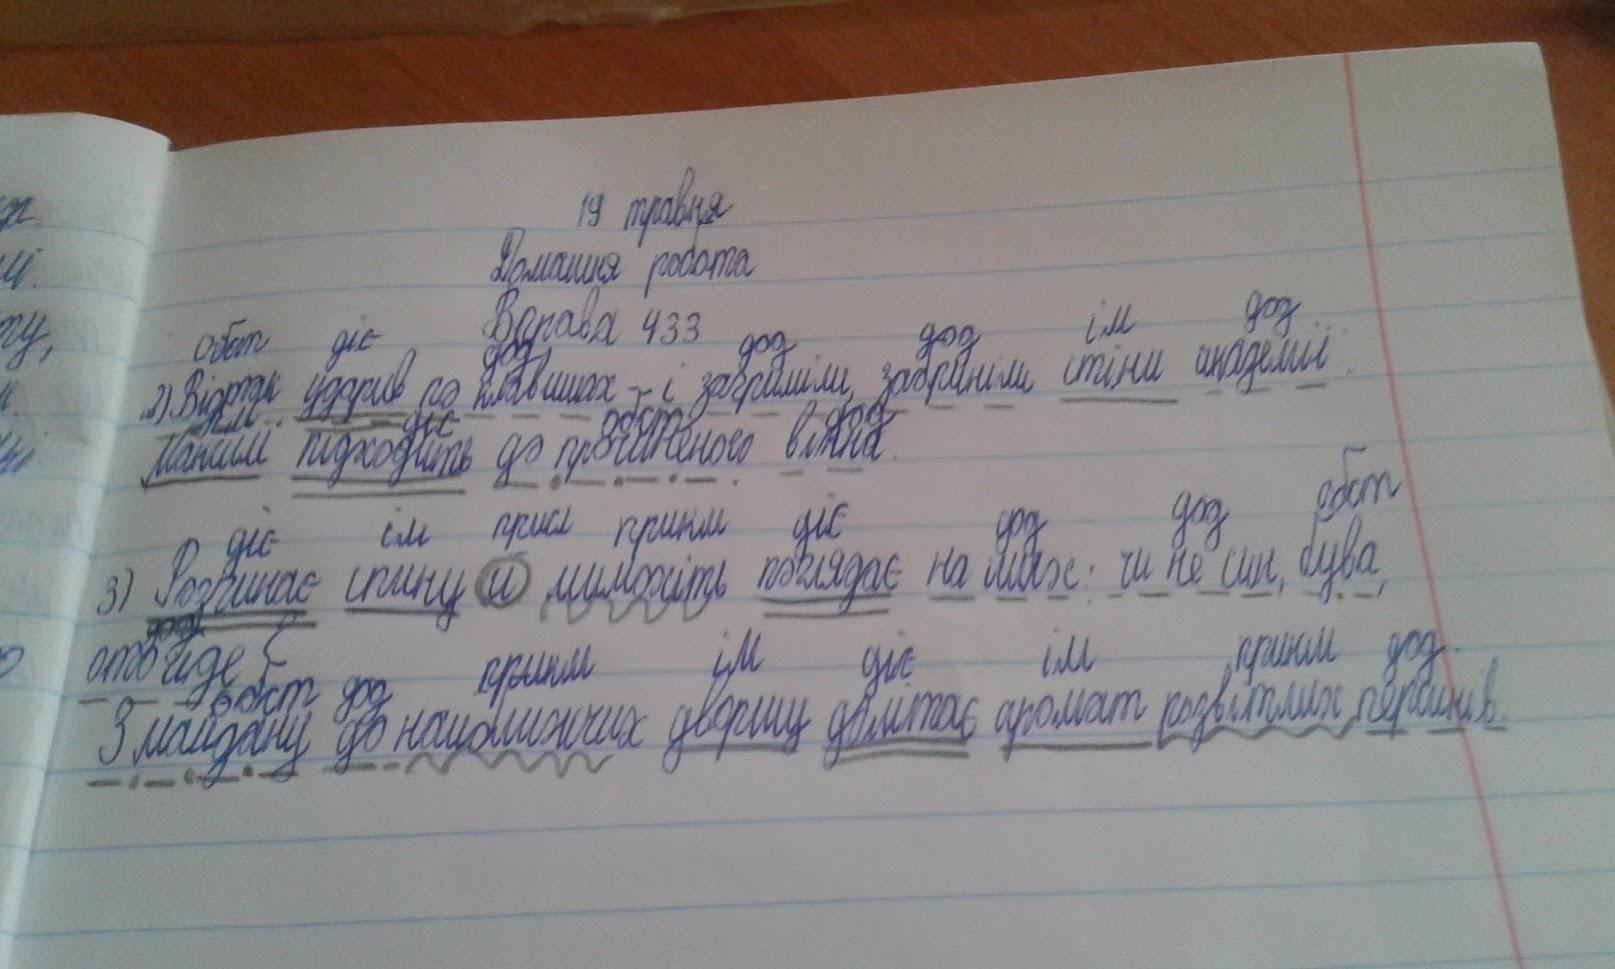 19 травня
Домашня робота
Вправа 433
обст діє дод дод дод ім дод
2) Відтак ударив по клавішах – і загриміли, забриніли стіни академії.
ім діє обст дод
Максим підходить до прочиненого вікна.
діє ім присл прикм діє дод дод обст
3) Розчинає спину й мимохіть поглядає на шлях: чи не син, бува,
дод
ото йде?
обст дод прикм ім діє ім прикм дод.
З майдану до найближчих дворищ долітає аромат розвітлих первинів.